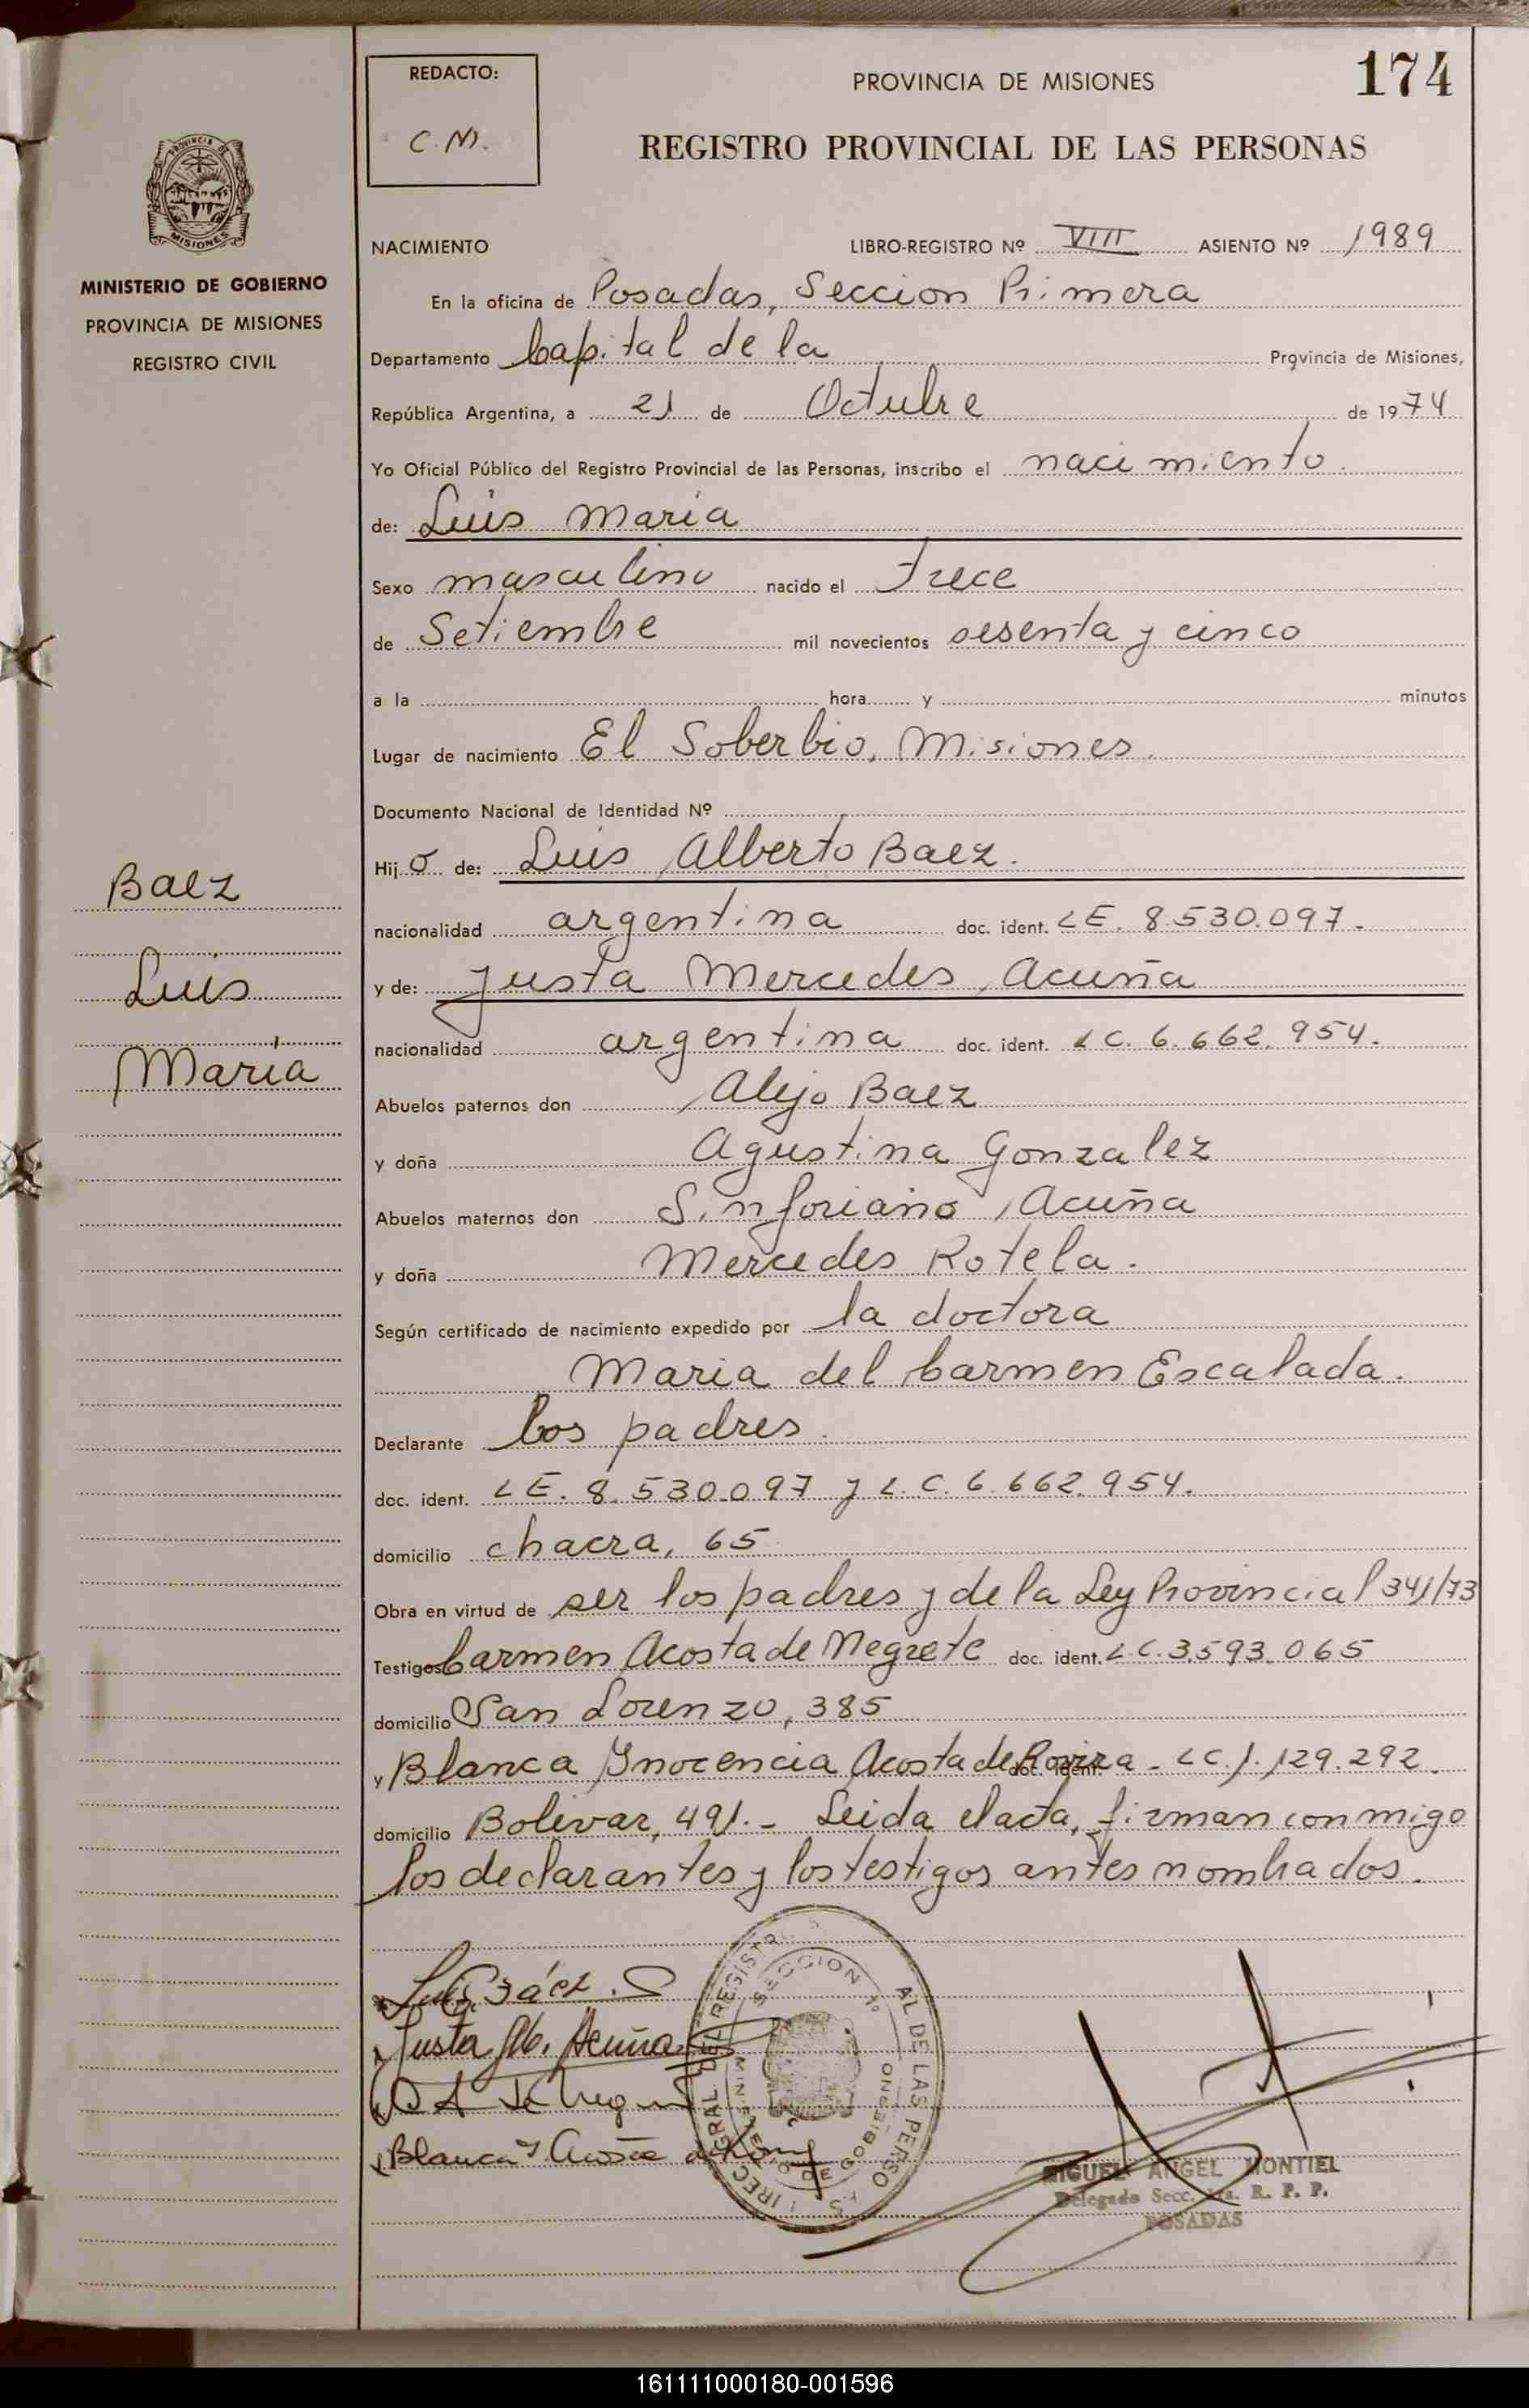 174
REDACTO:
C. M.
PROVINCIA DE MISIONES
REGISTRO PROVINCIAL DE LAS PERSONAS
PROVINCIA DE
MISIONES
MINISTERIO DE GOBIERNO
PROVINCIA DE MISIONES
REGISTRO CIVIL
NACIMIENTO LIBRO-REGISTRO Nº VIII ASIENTO Nº 1989
En la oficina de Posadas, Seccion Primera
Departamento Capital de la Provincia de Misiones,
República Argentina, a 21 de Octubre de 1974
Yo Oficial Público del Registro Provincial de las Personas, inscribo el nacimiento.
de: Luis Maria
Sexo masculino nacido el trece
de Setiembre mil novecientos sesenta y cinco
a la hora y minutos
Lugar de nacimiento El Soberbio, Misiones.
Documento Nacional de Identidad Nº
Hijo de: Luis Alberto Baez.
nacionalidad argentina doc. ident. LE. 8.530.097.
y de: Justa Mercedes Acuña
nacionalidad argentina doc. ident. LC. 6.662.954.
Abuelos paternos don Alejo Baez
y doña Agustina Gonzalez
Abuelos maternos don Sinforiano Acuña
y doña Mercedes Rotela.
Según certificado de nacimiento expedido por la doctora
Maria del Carmen Escalada.
Declarante Los padres.
doc. ident. LE. 8.530.097 y L.C. 6.662.954.
domicilio chacra, 65
Obra en virtud de ser los padres y de la Ley Provincial 341/73
Testigos Carmen Acosta de Negrete doc. ident. L.C. 3.593.065
domicilio San Lorenzo, 385
y Blanca Ynocencia Acosta de Rovira - doc. ident. LC. 1.129.292.
domicilio Bolivar, 491.- Leida el acta, firman conmigo
los declarantes y los testigos antes nombrados.
Baez
Luis
María
Luis Báez
Justa M. Acuña
Blanca Y. Acosta de
SECCION 1º
MINISTERIO DE GOBIERNO
MIGUEL ANGEL MONTIEL
Delegado Secc. 1ra. R. P. P.
POSADAS
161111000180-001596